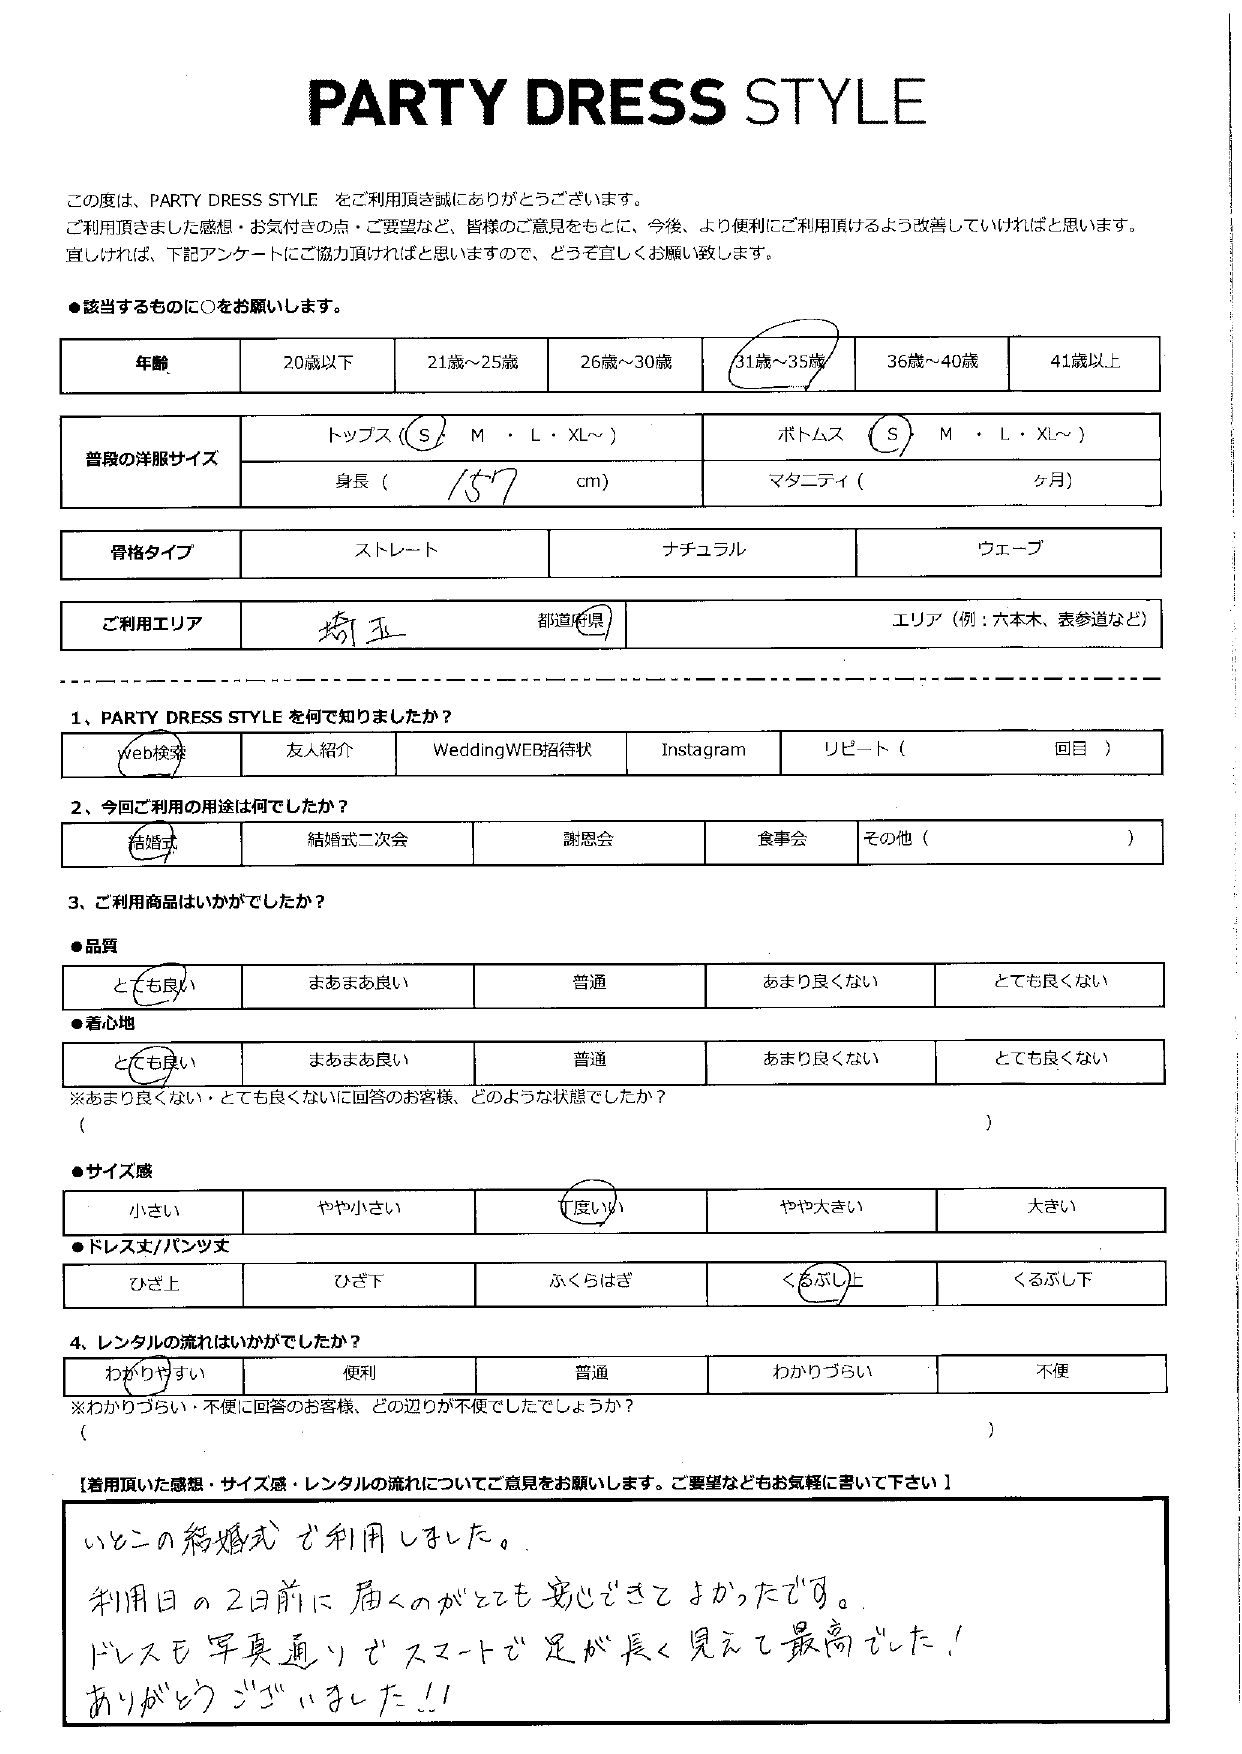 PARTY DRESS STYLE
この度は、PARTY DRESS STYLE をご利用頂き誠にありがとうございます。
ご利用頂きました感想・お気付きの点・ご要望など、皆様のご意見をもとに、今後、より便利にご利用頂けるよう改善していければと思います。
宜しければ、下記アンケートにご協力頂ければと思いますので、どうぞ宜しくお願い致します。
●該当するものに○をお願いします。
年齢 20歳以下 21歳～25歳 26歳～30歳 31歳～35歳 36歳～40歳 41歳以上
普段の洋服サイズ トップス ( S ・ M ・ L ・ XL～ ) ボトムス ( S ・ M ・ L ・ XL～ )
身長 ( 157 cm) マタニティ ( ヶ月)
骨格タイプ ストレート ナチュラル ウェーブ
ご利用エリア 埼玉 都道府県 エリア（例：六本木、表参道など）
1、PARTY DRESS STYLE を何で知りましたか？
Web検索 友人紹介 WeddingWEB招待状 Instagram リピート ( 回目 )
2、今回ご利用の用途は何でしたか？
結婚式 結婚式二次会 謝恩会 食事会 その他 ( )
3、ご利用商品はいかがでしたか？
●品質
とても良い まあまあ良い 普通 あまり良くない とても良くない
●着心地
とても良い まあまあ良い 普通 あまり良くない とても良くない
※あまり良くない・とても良くないに回答のお客様、どのような状態でしたか？
( )
●サイズ感
小さい やや小さい 丁度いい やや大きい 大きい
●ドレス丈/パンツ丈
ひざ上 ひざ下 ふくらはぎ くるぶし上 くるぶし下
4、レンタルの流れはいかがでしたか？
わかりやすい 便利 普通 わかりづらい 不便
※わかりづらい・不便に回答のお客様、どの辺りが不便でしたでしょうか？
( )
【着用頂いた感想・サイズ感・レンタルの流れについてご意見をお願いします。ご要望などもお気軽に書いて下さい】
いとこの結婚式で利用しました。
利用日の2日前に届くのがとても安心できてよかったです。
ドレスも写真通りでスマートで足が長く見えて最高でした！
ありがとうございました!!